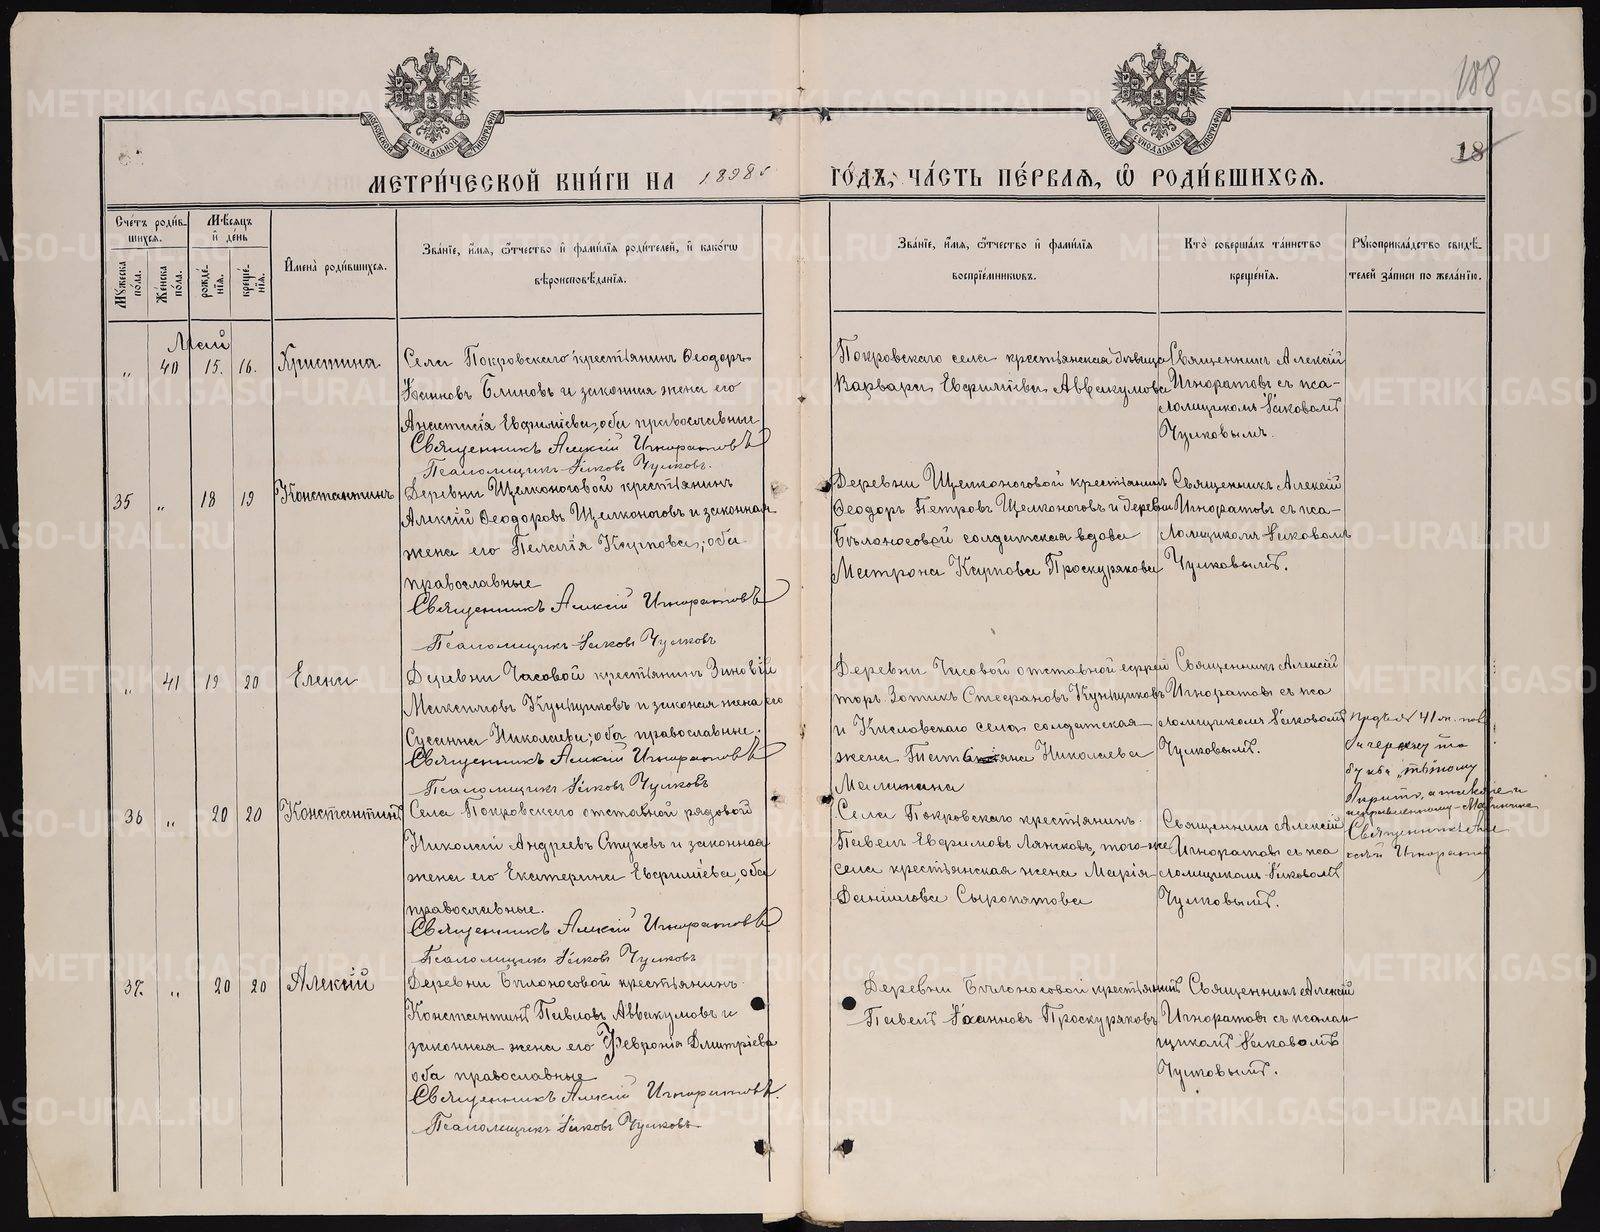 188
18
МЕТРИ́ЧЕСКОЙ КНИ́ГИ НА 1898 ГО́ДЪ, ЧА́СТЬ ПЕ́РВАѦ, Ѡ҆ РОДИ́ВШИХСѦ.
Сче́тъ роди́в-
шихсѧ.
Мѣ́сѧцъ
и҆ де́нь
Мꙋ́жеска
по́ла.
Же́нска
по́ла.
рожде́-
нїѧ.
креще́-
нїѧ.
И҆мена̀ роди́вшихсѧ.
Зва́нїе, и҆́мѧ, ѻ҆́тчество и҆ фами́лїѧ роди́телей, и҆ како́гѡ
вѣроисповѣ́данїѧ.
Зва́нїе, и҆́мѧ, ѻ҆́тчество и҆ фами́лїѧ
воспрїе́мникѡвъ.
Кто̀ соверша́лъ та́инство
креще́нїѧ.
Рꙋкоприкла́дство свидѣ́-
телей за́писи по жела́нїю.
Май
„ 40 15. 16. Христина
Села Покровскаго крестьянинъ Ѳеодоръ
Іоанновъ Блиновъ и законная жена его
Анастасія Евфиміева, оба православные
Священникъ Алексій Игноратовъ
Псаломщикъ Іаковъ Чулковъ.
Покровскаго села крестьянская дѣвица
Варвара Евфиміева Аввакумова
Священникъ Алексій
Игноратовъ съ пса-
ломщикомъ Іаковомъ
Чулковымъ.
35 „ 18 19 Константинъ
Деревни Щелконоговой крестьянинъ
Алексій Ѳеодоровъ Щелконоговъ и законная
жена его Пелагія Карпова; оба
православные
Священникъ Алексій Игноратовъ
Псаломщикъ Іаковъ Чулковъ
Деревни Щелконоговой крестьянинъ
Ѳеодоръ Петровъ Щелконоговъ и деревни
Бѣлоносовой солдатская вдова
Матрона Карпова Проскурякова
Священникъ Алексій
Игноратовъ съ пса-
ломщикомъ Іаковомъ
Чулковымъ.
„ 41 19 20 Елена
Деревни Часовой крестьянинъ Зиновій
Максимовъ Кунщиковъ и законая жена его
Сусанна Николаева; оба православные.
Священникъ Алексій Игноратовъ
Псаломщикъ Іаковъ Чулковъ
Деревни Часовой отставной ефрей
торъ Зотикъ Стефановъ Кунщиковъ
и Кисловскаго села солдатская
жена Татьяна Николаева
Малинина
Священникъ Алексій
Игноратовъ съ пса
ломщикомъ Іаковомъ
Чулковымъ.
41
Священникъ Але
ксій Игноратов
36 „ 20 20 Константинъ
Села Покровскаго отставной рядовой
Николай Андреевъ Стуковъ и законная
жена его Екатерина Евфиміева, оба
православные.
Священникъ Алексій Игноратовъ
Псаломщикъ Іаковъ Чулковъ
Села Покровскаго крестьянинъ
Павелъ Евфимовъ Лянковъ, того-же
села крестьянская жена Марія
Даніилова Сыропятова
Священникъ Алексій
Игноратовъ съ пса
ломщикомъ Іаковомъ
Чулковымъ.
37. „ 20 20 Алексій
Деревни Бѣлоносовой крестьянинъ
Константинъ Павловъ Аввакумовъ и
законная жена его Февронія Дмитріева
оба православные
Священникъ Алексій Игноратовъ.
Псаломщикъ Іаковъ Чулковъ
Деревни Бѣлоносовой крестьянинъ
Павелъ Іоанновъ Проскуряковъ
Священникъ Алексій
Игноратовъ съ псалом
щикомъ Іаковомъ
Чулковымъ.